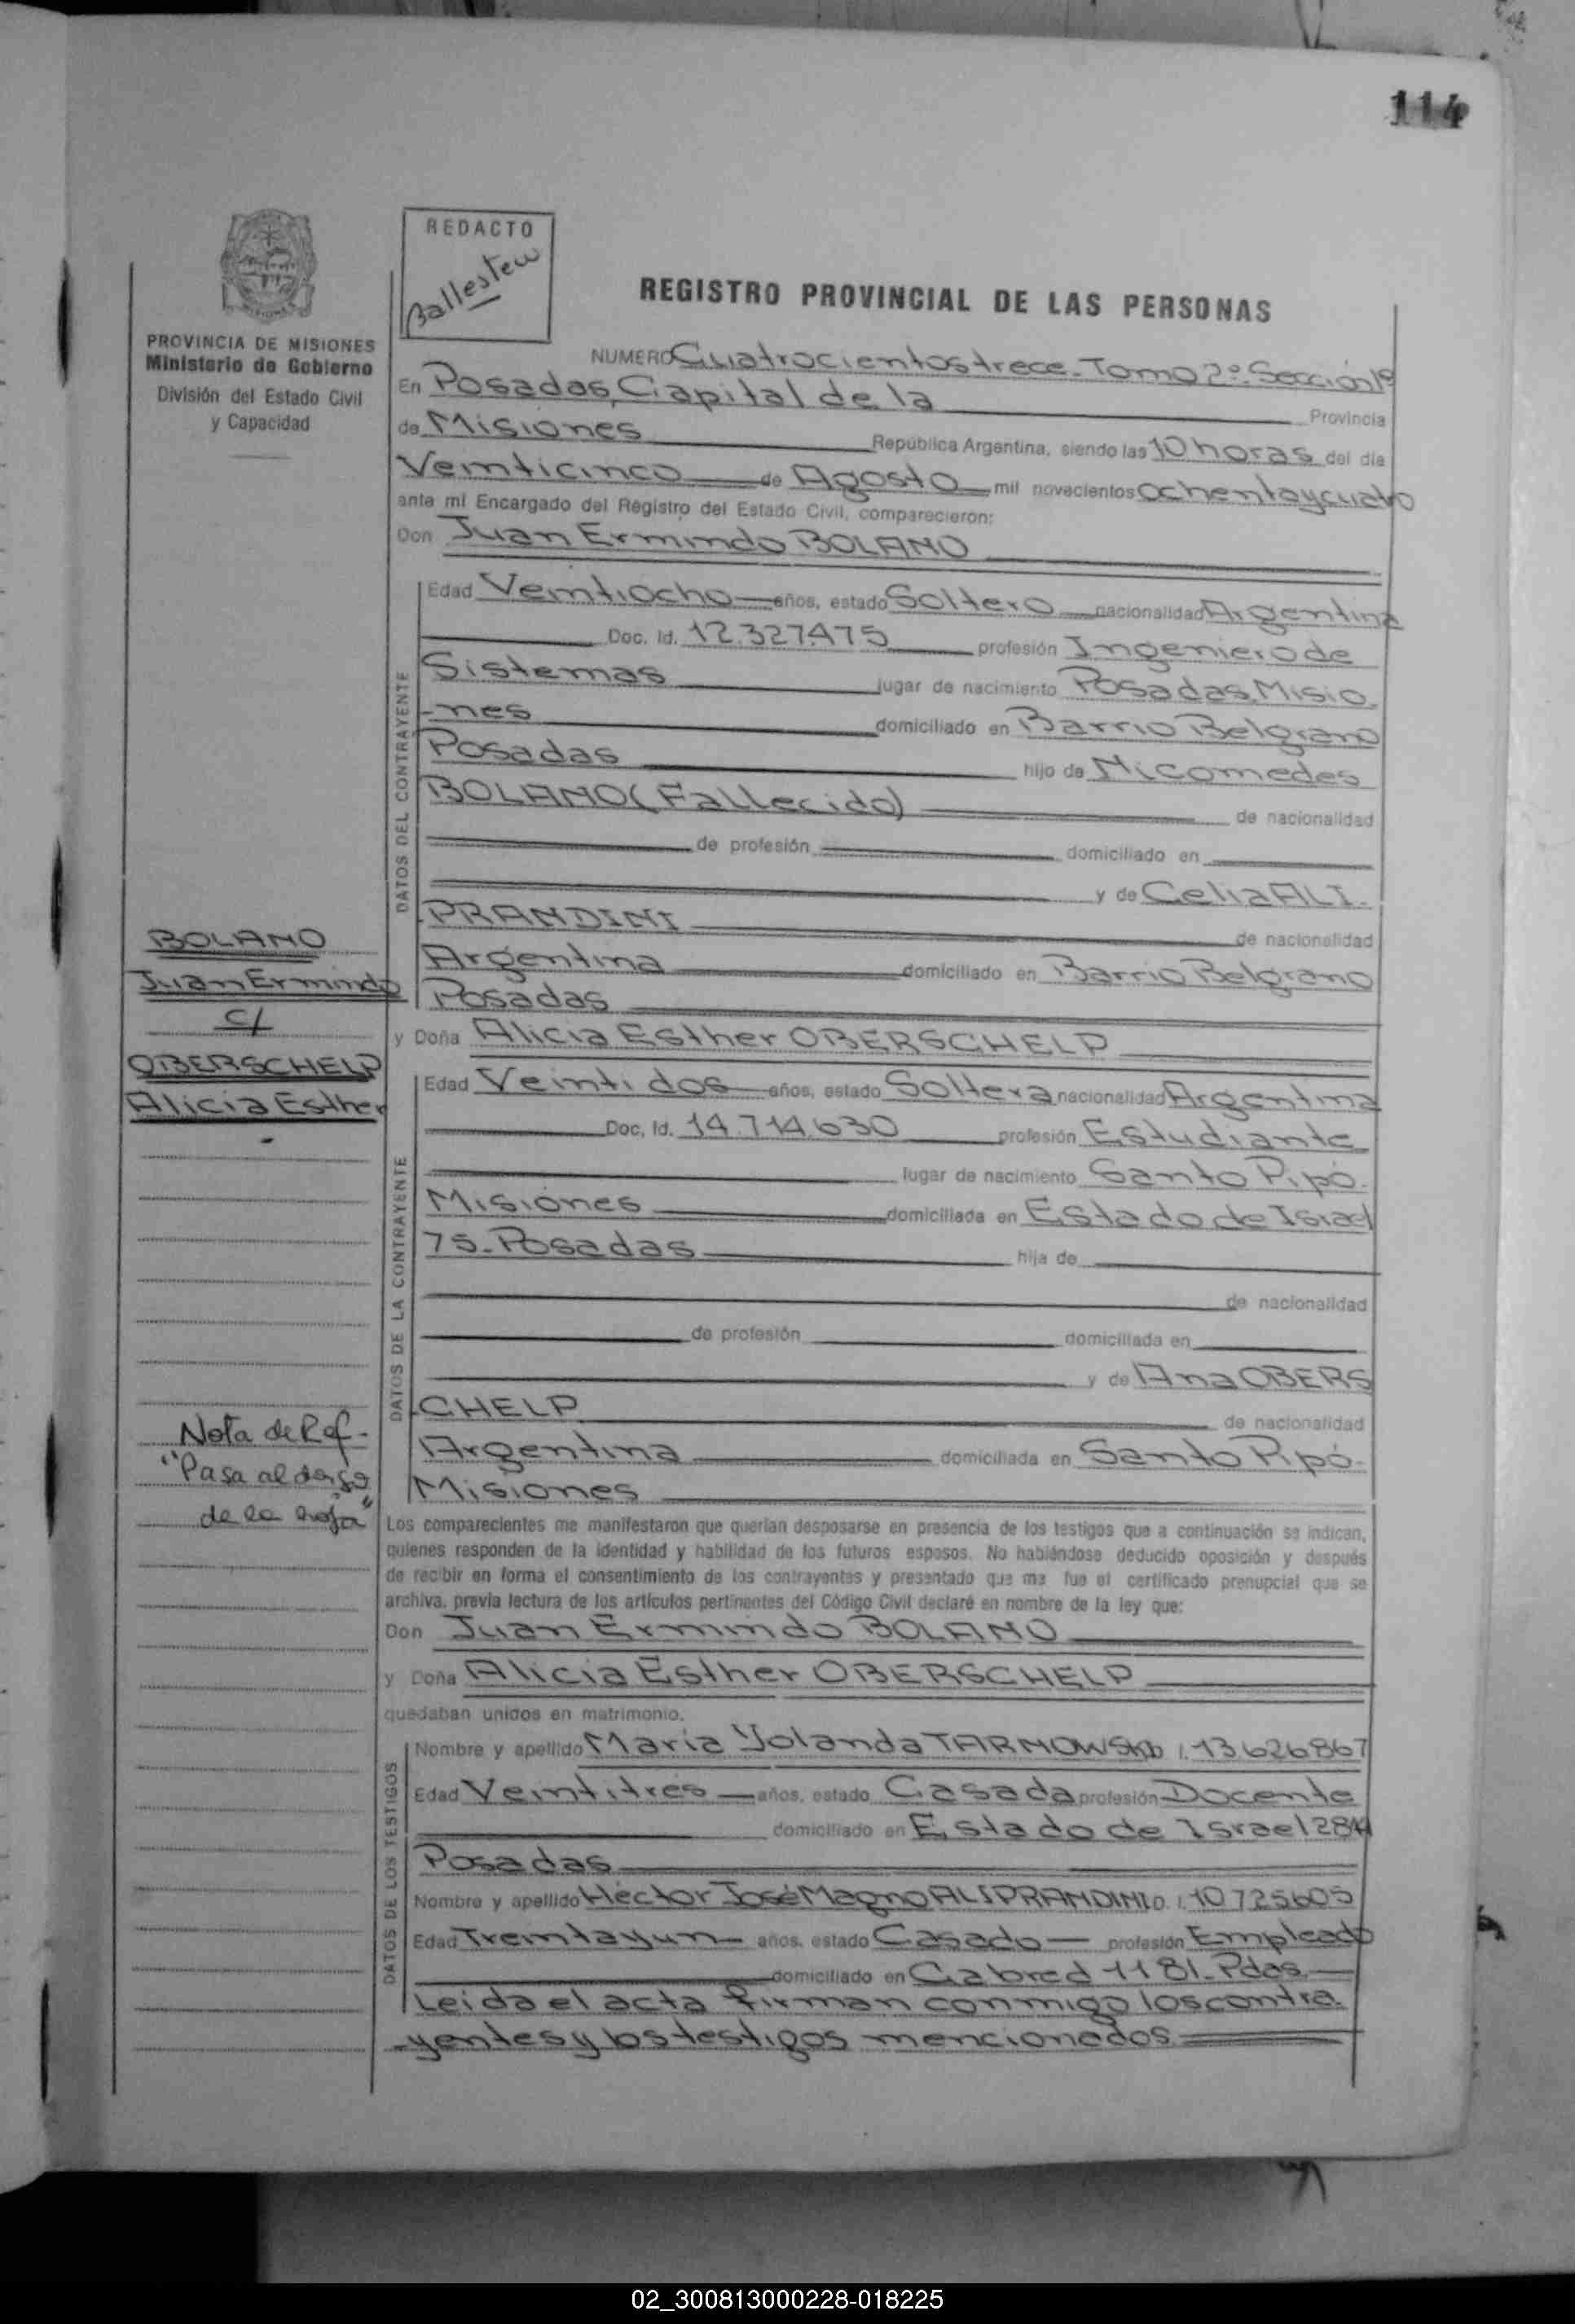 114
REDACTO
Ballesteu
REGISTRO PROVINCIAL DE LAS PERSONAS
PROVINCIA DE MISIONES
Ministerio de Gobierno
División del Estado Civil
y Capacidad
NUMERO Cuatrocientos trece - Tomo 2º Sección 1º
En Posadas, Capital de la Provincia
de Misiones República Argentina, siendo las 10 horas del día
Veinticinco de Agosto mil novecientos ochenta y cuatro
ante mi Encargado del Registro del Estado Civil, comparecieron:
Don Juan Ermindo BOLANO
DATOS DEL CONTRAYENTE
Edad Veintiocho años, estado Soltero nacionalidad Argentina
Doc. Id. 12.327.475 profesión Ingeniero de
Sistemas lugar de nacimiento Posadas, Misio-
-nes domiciliado en Barrio Belgrano
Posadas hijo de Nicomedes
BOLANO (Fallecido) de nacionalidad
de profesión domiciliado en
y de Celia ALI-
PRANDINI de nacionalidad
Argentina domiciliado en Barrio Belgrano
Posadas
BOLANO
Juan Ermindo
c/
OBERSCHELP
Alicia Esther
-
y Doña Alicia Esther OBERSCHELP
DATOS DE LA CONTRAYENTE
Edad Veintidos años, estado Soltera nacionalidad Argentina
Doc. Id. 14.714.630 profesión Estudiante
lugar de nacimiento Santo Pipó-
Misiones domiciliada en Estado de Israel
75-Posadas hija de
de nacionalidad
de profesión domiciliada en
y de Ana OBERS
CHELP de nacionalidad
Argentina domiciliada en Santo Pipó-
Misiones
Nota de Ref-
"Pasa al dorso
de la hoja"
Los comparecientes me manifestaron que querían desposarse en presencia de los testigos que a continuación se indican,
quienes responden de la identidad y habilidad de los futuros esposos. No habiéndose deducido oposición y después
de recibir en forma el consentimiento de los contrayentes y presentado que me fue el certificado prenupcial que se
archiva, previa lectura de los artículos pertinentes del Código Civil declaré en nombre de la ley que:
Don Juan Ermindo BOLANO
y Doña Alicia Esther OBERSCHELP
quedaban unidos en matrimonio.
DATOS DE LOS TESTIGOS
Nombre y apellido Maria Yolanda TARNOWSKI D.I. 13626867
Edad Veintitres años, estado Casada profesión Docente
domiciliado en Estado de Israel 284
Posadas
Nombre y apellido Héctor José Magno ALIPRANDINI D.I. 10725605
Edad Treintayun años, estado Casado profesión Empleado
domiciliado en Cabred 1181-Pdas.
Leida el acta firman conmigo los contra-
-yentes y los testigos mencionados
02_300813000228-018225